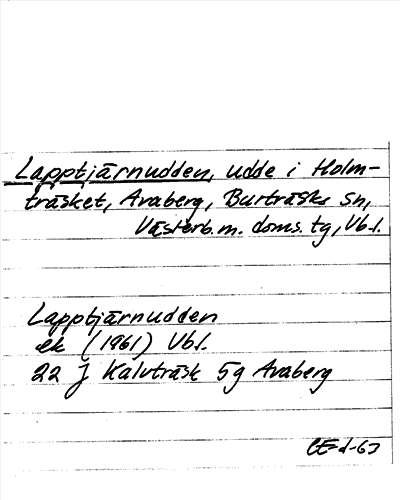 Lapptjärnudden, udde i Holm-
träsket, Avaberg, Burträsks sn,
Västerb. m. doms. tg, Vb.l.
Lapptjärnudden
ek (1961) Vb.l.
22 J Kalvträsk 5g Avaberg